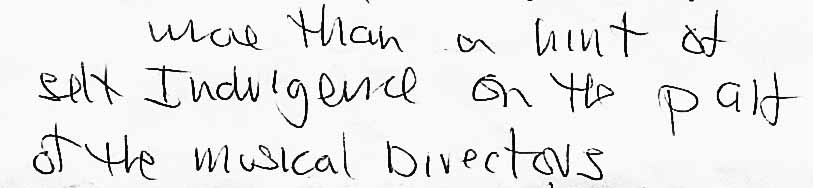 more than a hint of
self Indulgence on the part
of the musical Directors